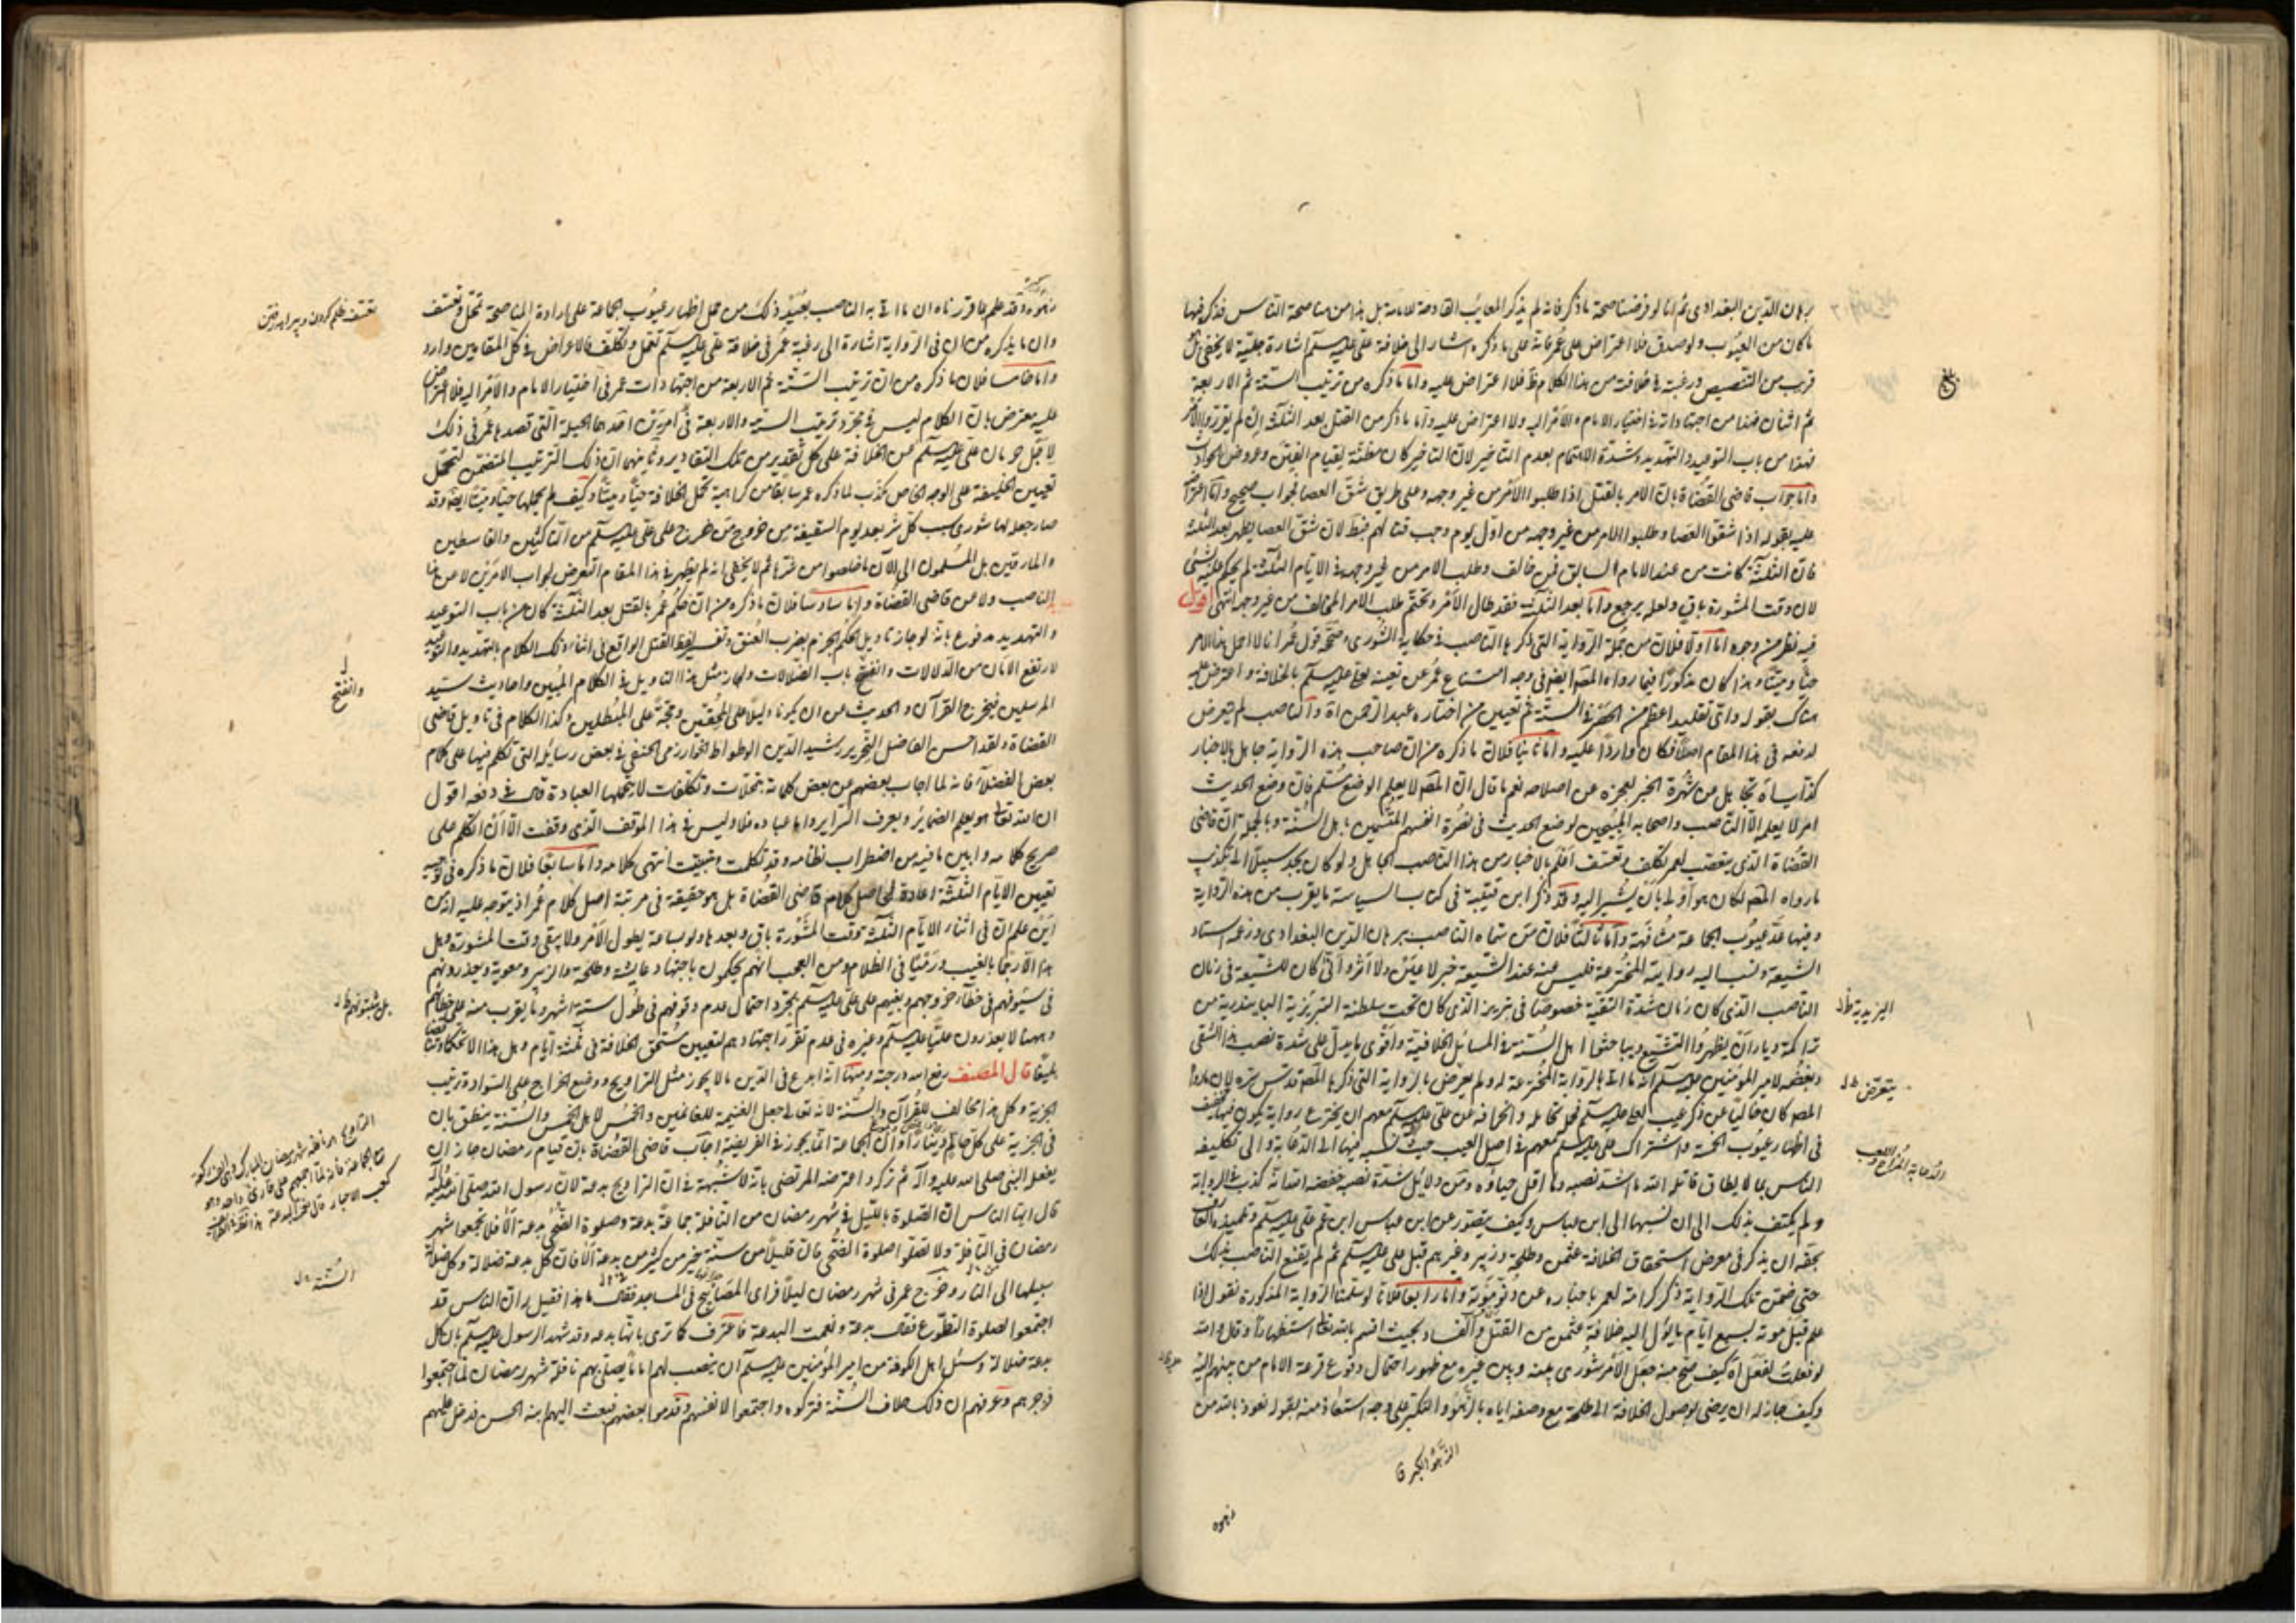 برهان الدين البغدادى ثم انا لو فرضنا صحة ما ذكر فانه لم يذكر المعايب القادحة للامامة بل هذا من مناصحة الناس فذكر فيها
ما كان من العيوب ولو صدق فلا اعتراض على عمر فانه على ما ذكره اشار الى خلافة على عليه سلم اشارة جلية لا يخفى بل
قريب من التنصيص ورغبته فى خلافته من هذا الكلام ظ فلا اعتراض عليه واما ما ذكره من ترتيب الستة ثم الاربعة
ثم اثنان فهذا من اجتهاداته فى اختيار الامام والامر اليه ولا اعتراض عليه واما ما ذكر من القتل بعد الثلثة ان لم يقرروا الامر
فهذا من باب التوعيد والتهديد وشدة الاهتمام بعدم التاخير لان التاخير كان مظنة لقيام الفتن وعروض الحوادث
واما جواب قاضى القضاة بان الامر بالقتل اذا طلبوا الامر من غير وجهه وعلى طريق شق العصا فجواب صحيح واما اعتراضه
عليه بقوله اذا شقوا العصا وطلبوا الامر من غير وجهه من اول يوم وجب قتالهم فنقط لان شق العصا يظهر بعد الثلثة
فان الثلثة كانت من عند الامام السابق فمن خالف وطلب الامر من غير وجهه فى الايام الثلثة لم يحكم عليه بشئ
لان وقت المشورة باق ولعله يرجع واما بعد الثلثة فقد طال الامر وتحتم طلب الامر للمخالف من غير وجه انتهى اقول
فيه نظر من وجوه اما اولا فلان من جملة الرواية التى ذكرها الناصب فى حكاية الشورى وصححه قول عمر انا لا احمل هذا الامر
حيا وميتا وهذا كان مذكورا فيما رواه المص ايضا فى وجه امتناع عمر عن تعيينه لعلى عليه سلم بالخلافة واعترض عليه
هناك بقوله واى تقليد اعظم من الحصر فى الستة ثم تعيين من اختاره عبد الرحمن اه والناصب لم يتعرض
لدفعه فى هذا المقام اصلا فكان واردا عليه واما ثانيا فلان ما ذكره من ان صاحب هذه الرواية جاهل بالاخبار
كذاب اه تجاهل عن شهرة الخبر لعجزه عن اصلاحه نعم ما قال ان المص لا يعلم الوضع مسلم فان وضع الحديث
امر لا يعلم الا الناصب واصحابه المبيحين لوضع الحديث فى نصرة انفسهم المتسمين باهل السنة وبالجملة ان قاضى
القضاة الذى يتعصب لعمر بتكلف وتعسف اعلم بالاخبار من هذا الناصب الجاهل ولو كان يجد سبيلا الى تكذيب
ما رواه المص لكان هو اولى بان يشير اليه وقد ذكر ابن قتيبة فى كتاب السياسة ما يقرب من هذه الرواية
وفيها عد عيوب الجماعة مشافهة واما ثالثا فلان من سماه الناصب برهان الدين البغدادى وزعم استاد
الشيعة ونسب اليه روايته المخترعة فليس عنه عند الشيعة خبر ولا عين ولا اثر وانى كان للشيعة فى زمان
الناصب الذى كان زمان شدة التقية خصوصا فى تبريز الذى كان تحت سلطنة التبريزية البايندرية من
تراكمة وديار ان يظهروا التشيع ويباحثوا اهل السنة فى المسائل الخلافية واقوى ما يدل على شدة نصب هذا الشقى
وبغضه لامير المؤمنين عليه سلم انه ما اتى بالرواية المخترعة له ولم يعرض بالرواية التى ذكرها المص قدس سره لان ما رواه
المص كان خاليا عن ذكر عيب لعلى عليه سلم فحمله تحامله وانحرافه عن على عليه سلم معهم ان يخترع رواية يكون فيها
فى اظهار عيوب الخمسة واشتراك على عليه سلم معهم فى اصل العيب حيث نسبه فيها الى الدعابة والى تكليف
الناس بما لا يطاق قاتله الله ما اشد نصبه وما اقل حياؤه ومن دلائل شدة نصبه خفضه الله انه كذب فى الرواية
ولم يكتف بذلك الى ان نسبها الى ابن عباس وكيف يتصور عن ابن عباس ابن عم على عليه سلم وتلميذه
بحقه ان يذكر فى معرض استحقاق الخلافة عثمن وطلحة وزبير وغيرهم قبل على عليه سلم ثم لم يقنع الناصب بذلك
حتى ضمن تلك الرواية ذكر كرامة لعمر باخباره عن واما رابعا فلانا لو سلمنا الرواية المذكورة نقول اذا
علم قبل موته بسبع ايام ما يؤل اليه خلافة عثمن من القتل والفساد بحيث اقسم بالله تعالى استظهارا وقال والله
لو فعلت لفعل اه كيف صح منه جعل الامر شورى بينه وبين غيره مع ظهور احتمال وقوع قرعة الامام من بينهم اليه
وكيف جاز له ان يرضى بوصول الخلافة الى طلحة مع وصفه اياه بالزهو والتكبر على وجه استعاذ منه بقوله نعوذ بالله من
اليزيدية ظ
يتعرض ظ
الدعابة المزاح واللعب
الزهو الكبر ق
زهوه
زهوه وقد علم بما قررناه ان ما اتى به الناصب بعيد ذلك من حمل اظهار عيوب الجماعة على ارادة المناصحة تمحل وتعسف
وان ما يذكره من ان فى الرواية اشارة الى رغبة عمر فى خلافة على عليه سلم تعمل وتكلف فالاعراض فى كل المقامين وارد
واما خامسا فلان ما ذكره من ان ترتيب الستة ثم الاربعة من اجتهادات عمر فى اختيار الامام والامر اليه فلا اعتراض
عليه معترض بان الكلام ليس فى مجرد ترتيب الستة والاربعة فى امرين احدهما الحيلة التى قصدها عمر فى ذلك
لاجل حرمان على عليه سلم عن الخلافة على كل تقدير من تلك التقادير وثانيهما ان ذلك الترتيب المتضمن لتحمل
تعيين الخليفة على الوجه الخاص مكذب لما ذكره عمر سابقا من كراهية تحمل الخلافة حيا وميتا وكيف لم يحملها حيا وميتا ايضا وقد
صار جعله لها شورى سبب كل شر بعد يوم السقيفة من خروج من خرج على على عليه سلم من الناكثين والقاسطين
والمارقين بل المسلمون الى الآن ما خلصوا من شرها ثم لا يخفى انه لم يظهر فى هذا المقام التعرض لجواب الامرين لا من هذا
الناصب ولا من قاضى القضاة واما سادسا فلان ما ذكره من ان حكم عمر بالقتل بعد الثلثة كان من باب التوعيد
والتهديد مدفوع بانه لو جاز تاويل الحكم الجزم بضرب العنق وتفسير لفظ القتل الواقع فى اثناء ذلك الكلام بالتهديد والتوعيد
لارتفع الامان من الدلالات وانفتح باب الضلالات ولجاز مثل هذا التاويل فى الكلام المبين واحاديث سيد
المرسلين فيخرج القرآن والحديث من ان يكونا دليلا على المحقين وحجة على المبطلين وكذا الكلام فى تاويل قاضى
القضاة ولقد احسن الفاضل النحرير رشيد الدين الوطواط الخوارزمى الحنفى فى بعض رسائله التى تكلم فيها على كلام
بعض الفضلاء فانه لما اجاب بعضهم عن بعض كلماته بتمحلات وتكلفات لا يتحملها العبادة قال فى دفعه اقول
ان الله تعالى هو يعلم الضمائر ويعرف السراير واما عباده فلا وليس فى هذا الموقف الذى وقفت الا ان اتكلم على
صريح كلامه وابين ما فيه من اضطراب نظامه وقد تكلمت وبينت انتهى كلامه واما سابعا فلان ما ذكره فى توجيه
تعيين الايام الثلثة اعادة لحاصل كلام قاضى القضاة بل هو حقيقة فى مرتبة اصل كلام عمر اذ يتوجه عليه انه من
اين علم ان فى اثناء الايام الثلثة وقت المشورة باق وبعدها ولو بساعة يطول الامر ولا يبقى وقت المشورة وهل
هذا الا رجما بالغيب ورميا فى الظلام ومن العجب انهم يحكمون باجتهاد عايشة وطلحة والزبير ومعوية ويعذرونهم
فى خطأ خروجهم وبغيهم على على عليه سلم بمجرد احتمال عدم وقوفهم فى طول ستة اشهر وما يقرب منه على خطائهم
وههنا لا يعذرون عليا عليه سلم وغيره فى عدم تقرر اجتهادهم لتعيين مستحق الخلافة فى ثلثة ايام وهل هذا الا تحكما
قال المصنف رفع الله درجته ومنها انه ابدع فى الدين ما لا يجوز مثل التراويح ووضع الخراج على السواد وترتيب
الجزية وكل هذا مخالف للقرآن والسنة لانه تعالى جعل الغنيمة للغانمين والخمس لاهل الخمس والسنة ينطق بان
فى الجزية على كل حالم دينارا وان الجماعة انما يجوز فى الفريضة اجاب قاضى القضاة بان قيام رمضان جاز ان
يفعله النبى صلى الله عليه وآله ثم تركه واعترضه المرتضى بانه لا شبهة فى ان التراويح بدعة لان رسول الله صلى الله عليه وآله
قال ايها الناس ان الصلوة بالليل فى شهر رمضان من النافلة جماعة بدعة وصلوة الضحى بدعة الا فلا تجمعوا شهر
رمضان فى النافلة ولا تصلوا صلوة الضحى فان قليلا من سنة خير من كثير من بدعة الا فان كل بدعة ضلالة وكل ضلالة
سبيلها الى النار وخرج عمر فى شهر رمضان ليلا فراى المصابيح فى المساجد فقال ما هذا فقيل له ان الناس قد
اجتمعوا لصلوة التطوع فقال بدعة ونعمت البدعة فاعترف كما ترى بانها بدعة وقد شهد الرسول عليه سلم بان كل
بدعة ضلالة وسئل اهل الكوفة من امير المؤمنين عليه سلم ان ينصب لهم اماما يصلى بهم نافلة شهر رمضان لما اجتمعوا
فزجرهم وعرفهم ان ذلك خلاف السنة فتركوه واجتمعوا لانفسهم وقدموا بعضهم فبعث اليهم ابنه الحسن فدخل عليهم
وانفتح
السنة